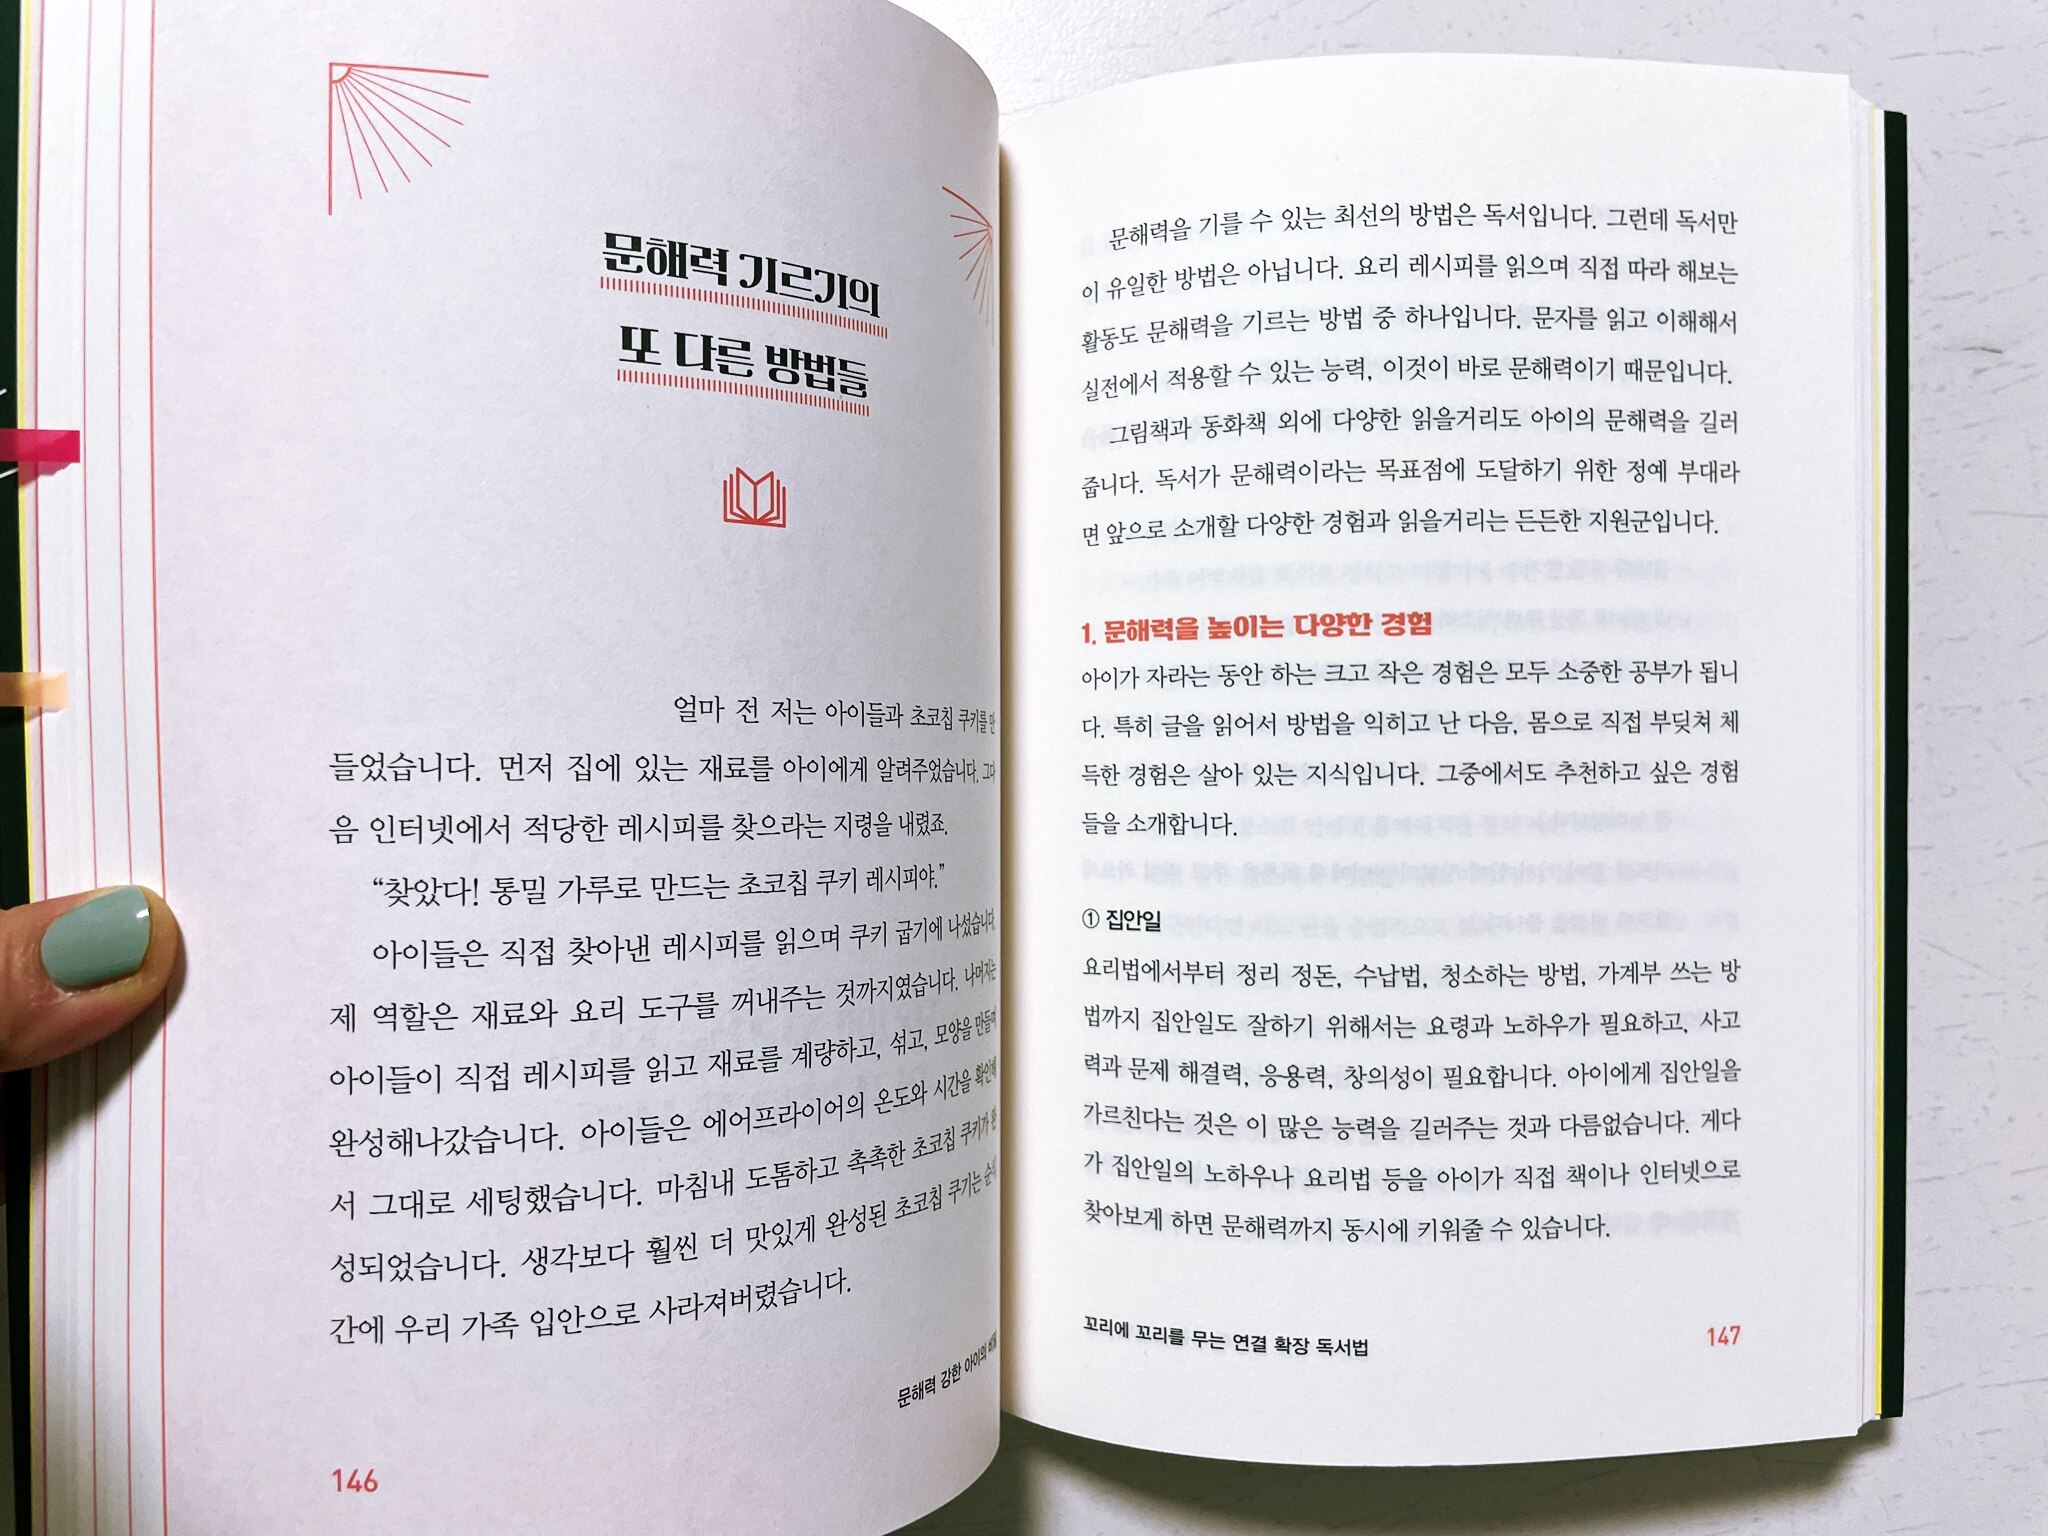 문해력 기르기의
또 다른 방법들
얼마 전 저는 아이들과 초코칩 쿠키를 만
들었습니다. 먼저 집에 있는 재료를 아이에게 알려주었습니다. 그다
음 인터넷에서 적당한 레시피를 찾으라는 지령을 내렸죠.
“찾았다! 통밀 가루로 만드는 초코칩 쿠키 레시피야.”
아이들은 직접 찾아낸 레시피를 읽으며 쿠키 굽기에 나섰습니다.
제 역할은 재료와 요리 도구를 꺼내주는 것까지였습니다. 나머지는
아이들이 직접 레시피를 읽고 재료를 계량하고, 섞고, 모양을 만들며
완성해나갔습니다. 아이들은 에어프라이어의 온도와 시간을 확인해
서 그대로 세팅했습니다. 마침내 도톰하고 촉촉한 초코칩 쿠키가 완
성되었습니다. 생각보다 훨씬 더 맛있게 완성된 초코칩 쿠기는 순식
간에 우리 가족 입안으로 사라져버렸습니다.
문해력 강한 아이의
146
문해력을 기를 수 있는 최선의 방법은 독서입니다. 그런데 독서만
이 유일한 방법은 아닙니다. 요리 레시피를 읽으며 직접 따라 해보는
활동도 문해력을 기르는 방법 중 하나입니다. 문자를 읽고 이해해서
실전에서 적용할 수 있는 능력, 이것이 바로 문해력이기 때문입니다.
그림책과 동화책 외에 다양한 읽을거리도 아이의 문해력을 길러
줍니다. 독서가 문해력이라는 목표점에 도달하기 위한 정예 부대라
면 앞으로 소개할 다양한 경험과 읽을거리는 든든한 지원군입니다.
1. 문해력을 높이는 다양한 경험
아이가 자라는 동안 하는 크고 작은 경험은 모두 소중한 공부가 됩니
다. 특히 글을 읽어서 방법을 익히고 난 다음, 몸으로 직접 부딪쳐 체
득한 경험은 살아 있는 지식입니다. 그중에서도 추천하고 싶은 경험
들을 소개합니다.
① 집안일
요리법에서부터 정리 정돈, 수납법, 청소하는 방법, 가계부 쓰는 방
법까지 집안일도 잘하기 위해서는 요령과 노하우가 필요하고, 사고
력과 문제 해결력, 응용력, 창의성이 필요합니다. 아이에게 집안일을
가르친다는 것은 이 많은 능력을 길러주는 것과 다름없습니다. 게다
가 집안일의 노하우나 요리법 등을 아이가 직접 책이나 인터넷으로
찾아보게 하면 문해력까지 동시에 키워줄 수 있습니다.
꼬리에 꼬리를 무는 연결 확장 독서법
147